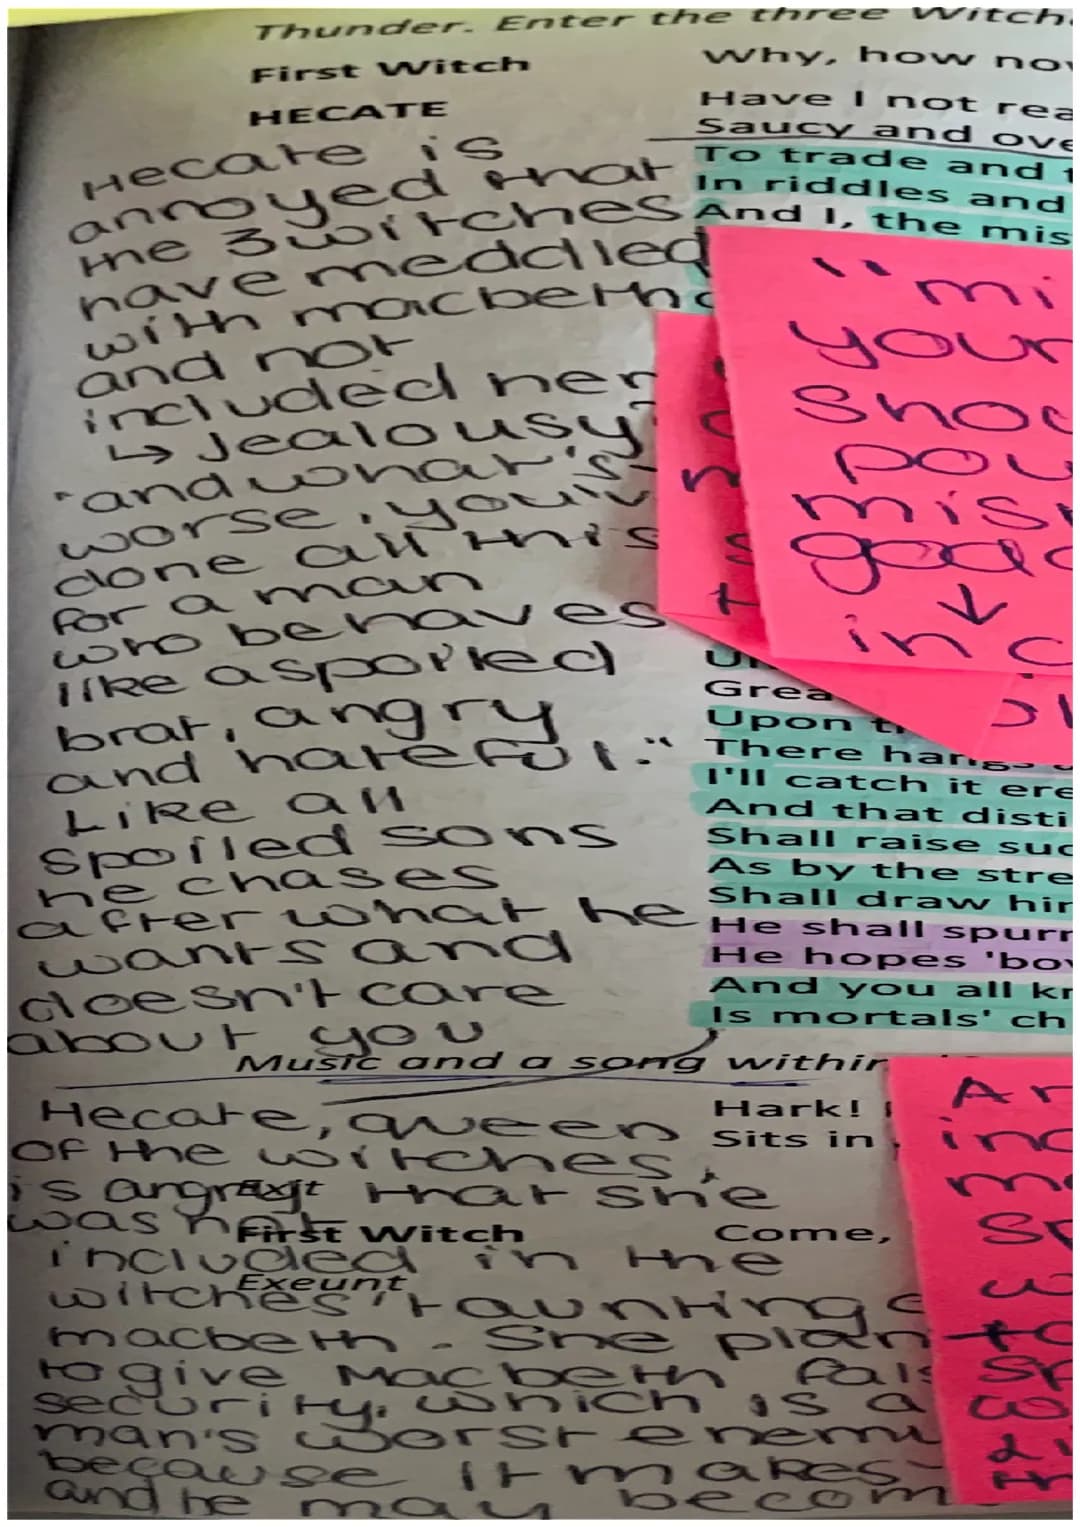 Thunder. Enter the three Witch
First Witch Why, how no
HECATE Have I not rea
Saucy and ove
To trade and
In riddles and
And I, the mis
Hecate is
annoyed that
the 3 witches
have meddled
with macbeth
and not
included her
↳ Jealousy?
"and what's
worse, you've
done all this
for a man
who behaves
like a spoiled
brat, angry
and hateful."
Like all
spoiled sons
he chases
after what he
wants and
doesn't care
about you
"mi
your
shou
pow
mis
godd
↓
in c
Grea
Upon t
There hangs
I'll catch it ere
And that disti
Shall raise suc
As by the stre
Shall draw hi
He shall spurn
He hopes 'bov
And you all kn
Is mortals' ch
Music and a song within
Hark!
Sits in
Exit
First Witch Come,
Exeunt
Hecate, queen
of the witches,
is angry that she
was not
included in the
witches' taunting
macbeth. She plan
to give Macbeth fals
security, which is a
man's worst enemy
because it makes
and he may becom
Ar
inc
mo
sp
w
to
sp
co
th